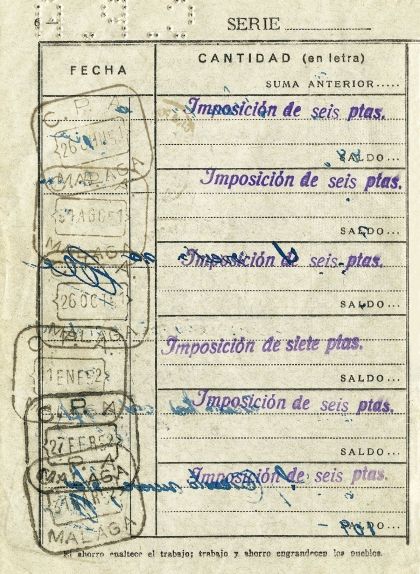 SERIE
FECHA
CANTIDAD (en letra)
SUMA ANTERIOR.....
Imposición de seis ptas.
C P A
26 JUN 51
MALAGA
SALDO...
Imposición de seis ptas.
31 AGO 51
MALAGA
SALDO...
Imposición de seis ptas.
26 OCT 51
MALAGA
SALDO...
Imposición de siete ptas.
1 ENE 52
SALDO...
Imposición de seis ptas.
C P A
27 FEB 52
MALAGA
SALDO...
Imposición de seis ptas.
MALAGA
SALDO...
El ahorro enaltece el trabajo; trabajo y ahorro engrandecen los pueblos.